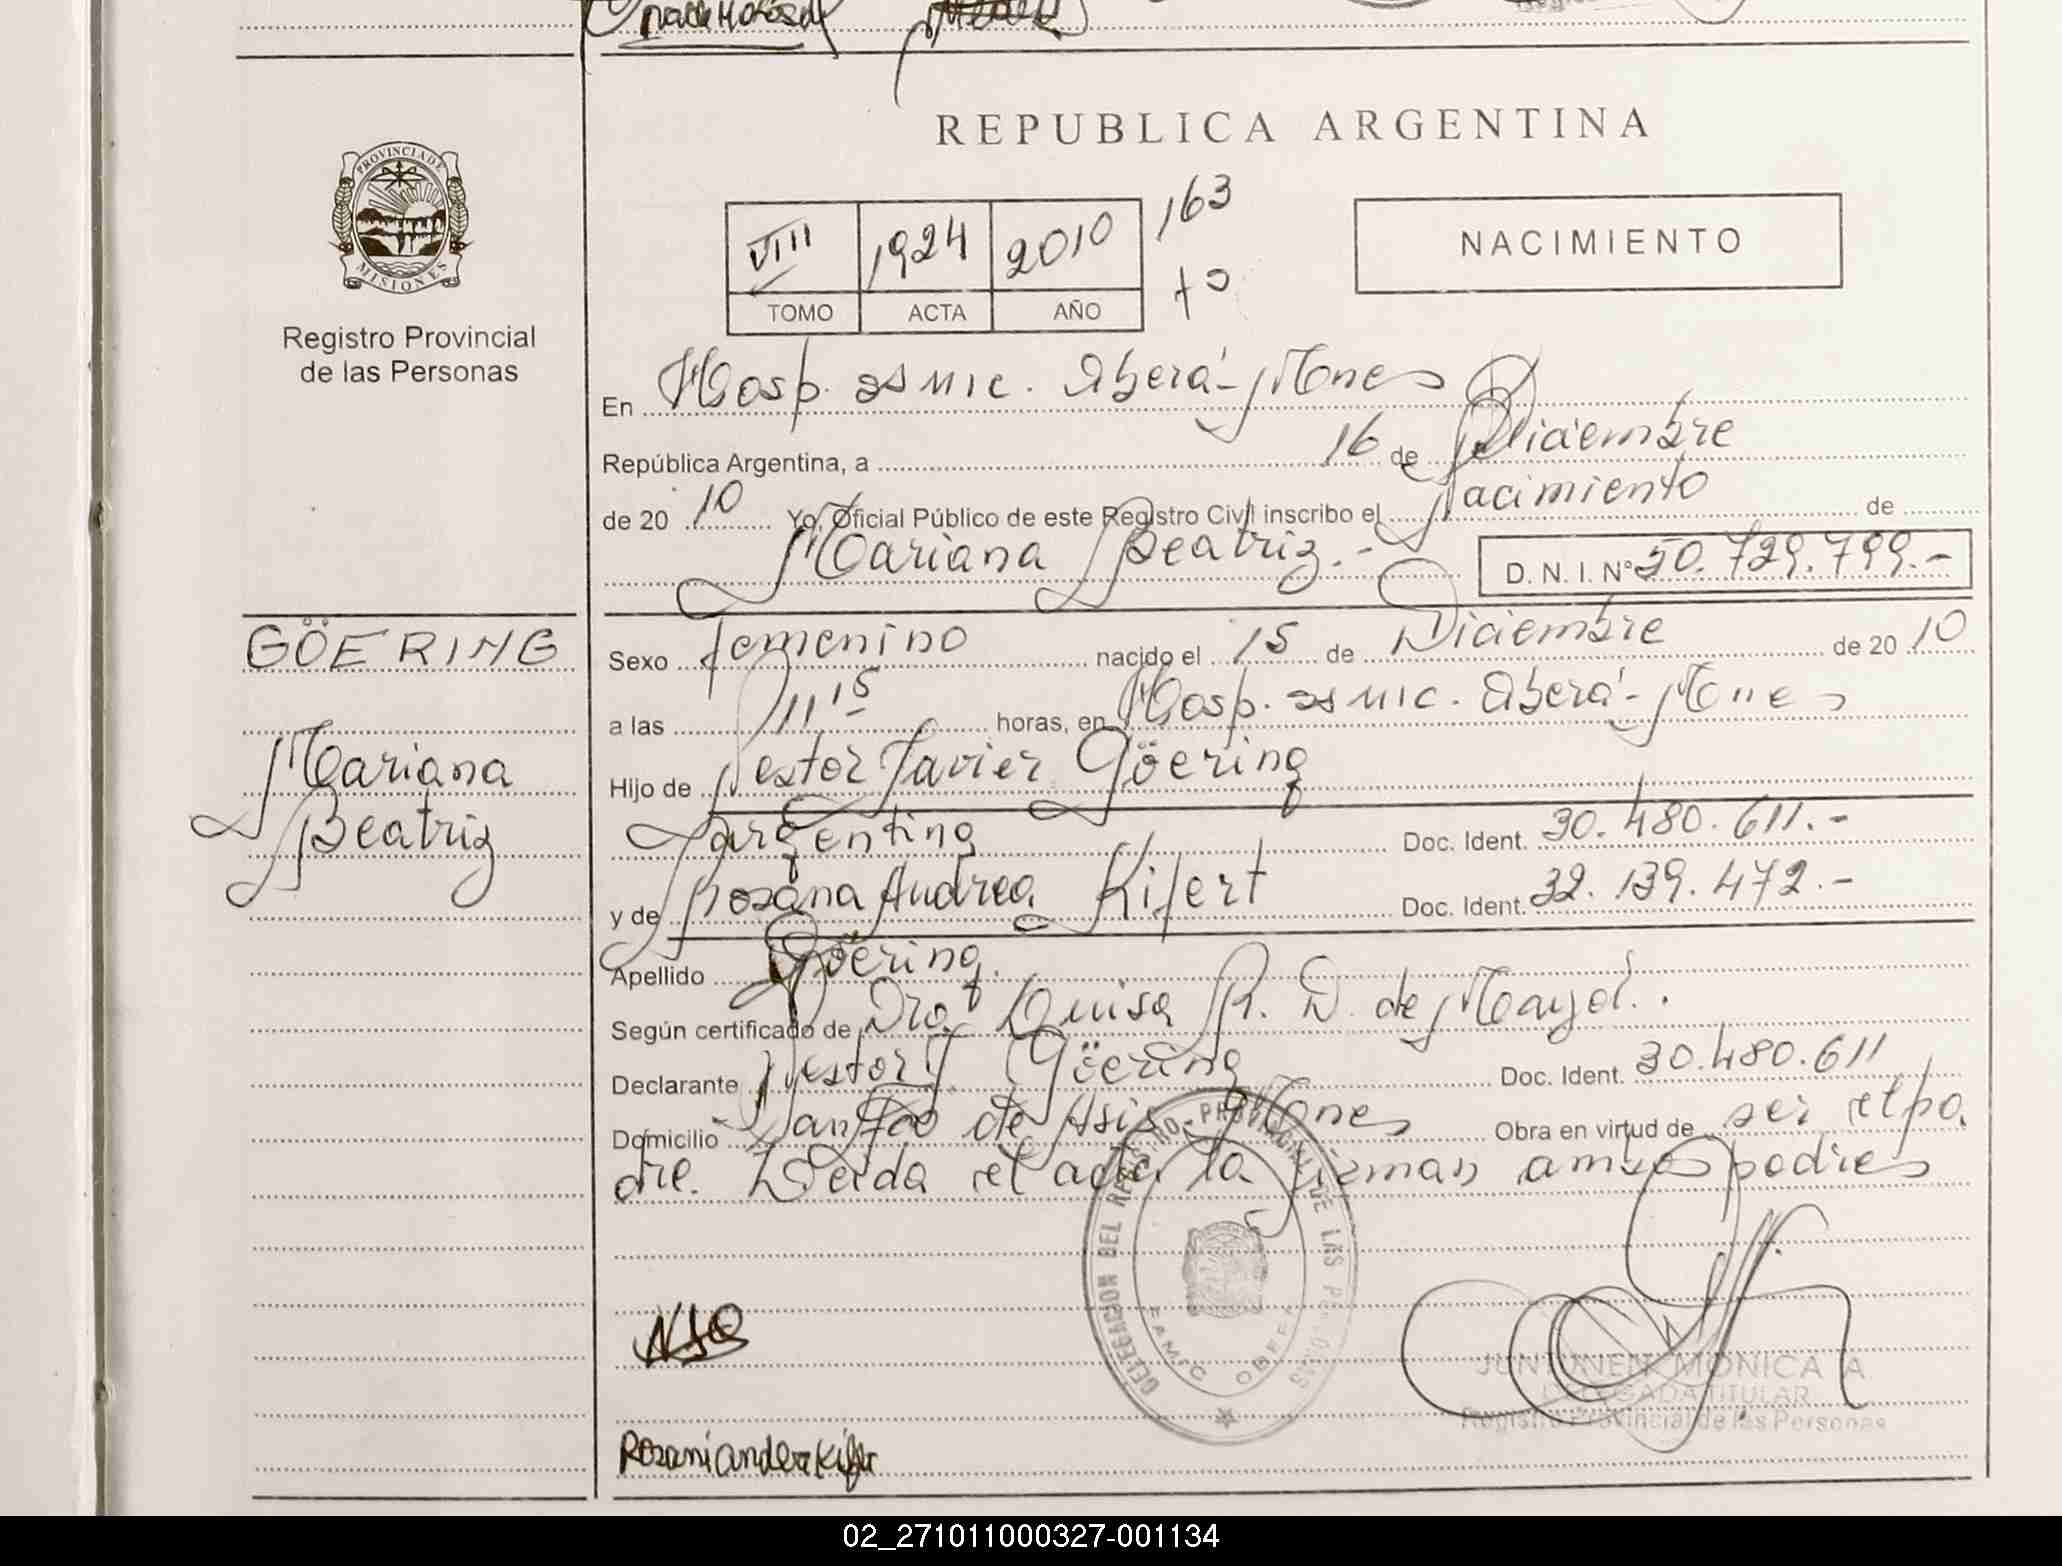 REPUBLICA ARGENTINA
PROVINCIA DE
MISIONES
Registro Provincial
de las Personas
VIII 1924 2010 163
TOMO ACTA AÑO
NACIMIENTO
En Hosp. Oberá - Mnes
República Argentina, a 16 de Diciembre
de 20 10 Yo, Oficial Público de este Registro Civil inscribo el Nacimiento de
Mariana Beatriz.- D. N. I. N° 50.729.799.-
GÖERING
Mariana
Beatriz
Sexo Femenino nacido el 15 de Diciembre de 20 10
a las 11 15 horas, en Hosp. Oberá - Mnes
Hijo de Nestor Javier Göering
Argentina Doc. Ident. 30.480.611.-
y de Rosana Andrea Kifert Doc. Ident. 32.139.472.-
Apellido Göering.
Según certificado de Dra Luisa R. D. de Mayol.
Declarante Nestor J Göering Doc. Ident. 30.480.611
Domicilio de Asis - Mnes Obra en virtud de ser el pa
dre. Leida el acta la firman ambos padres
DELEGACION DEL REGISTRO PROVINCIAL DE LAS PERSONAS
JUNTUNEN MONICA A
DELEGADA TITULAR
Registro Provincial de las Personas
02_271011000327-001134